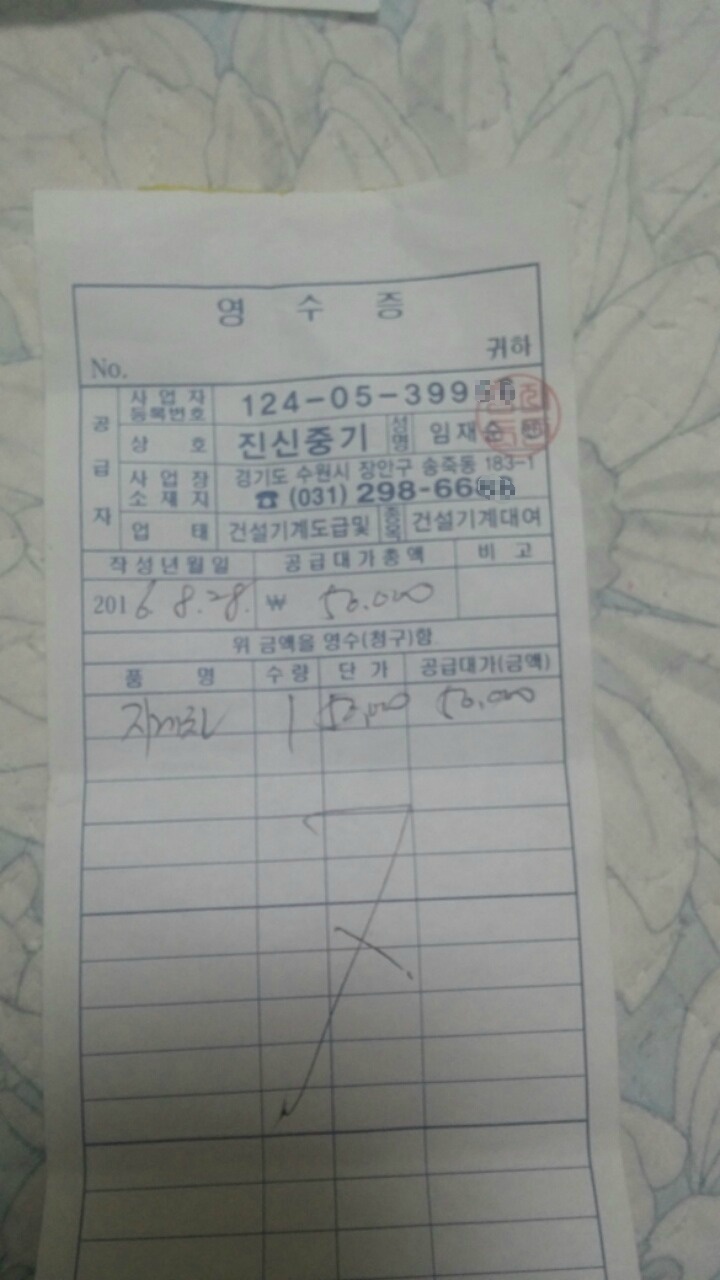 영 수 증
No. 귀하
공급자
사업자등록번호 124-05-399
상 호 진신중기 성명 임재순 ㊞
사업장소재지 경기도 수원시 장안구 송죽동 183-1
☎ (031) 298-66
업 태 건설기계도급및 종목 건설기계대여
작성년월일 공급대가총액 비 고
2016. 8. 28. ₩ 50.000
위 금액을 영수(청구)함
품 명 수량 단 가 공급대가(금액)
1 50,000 50.000